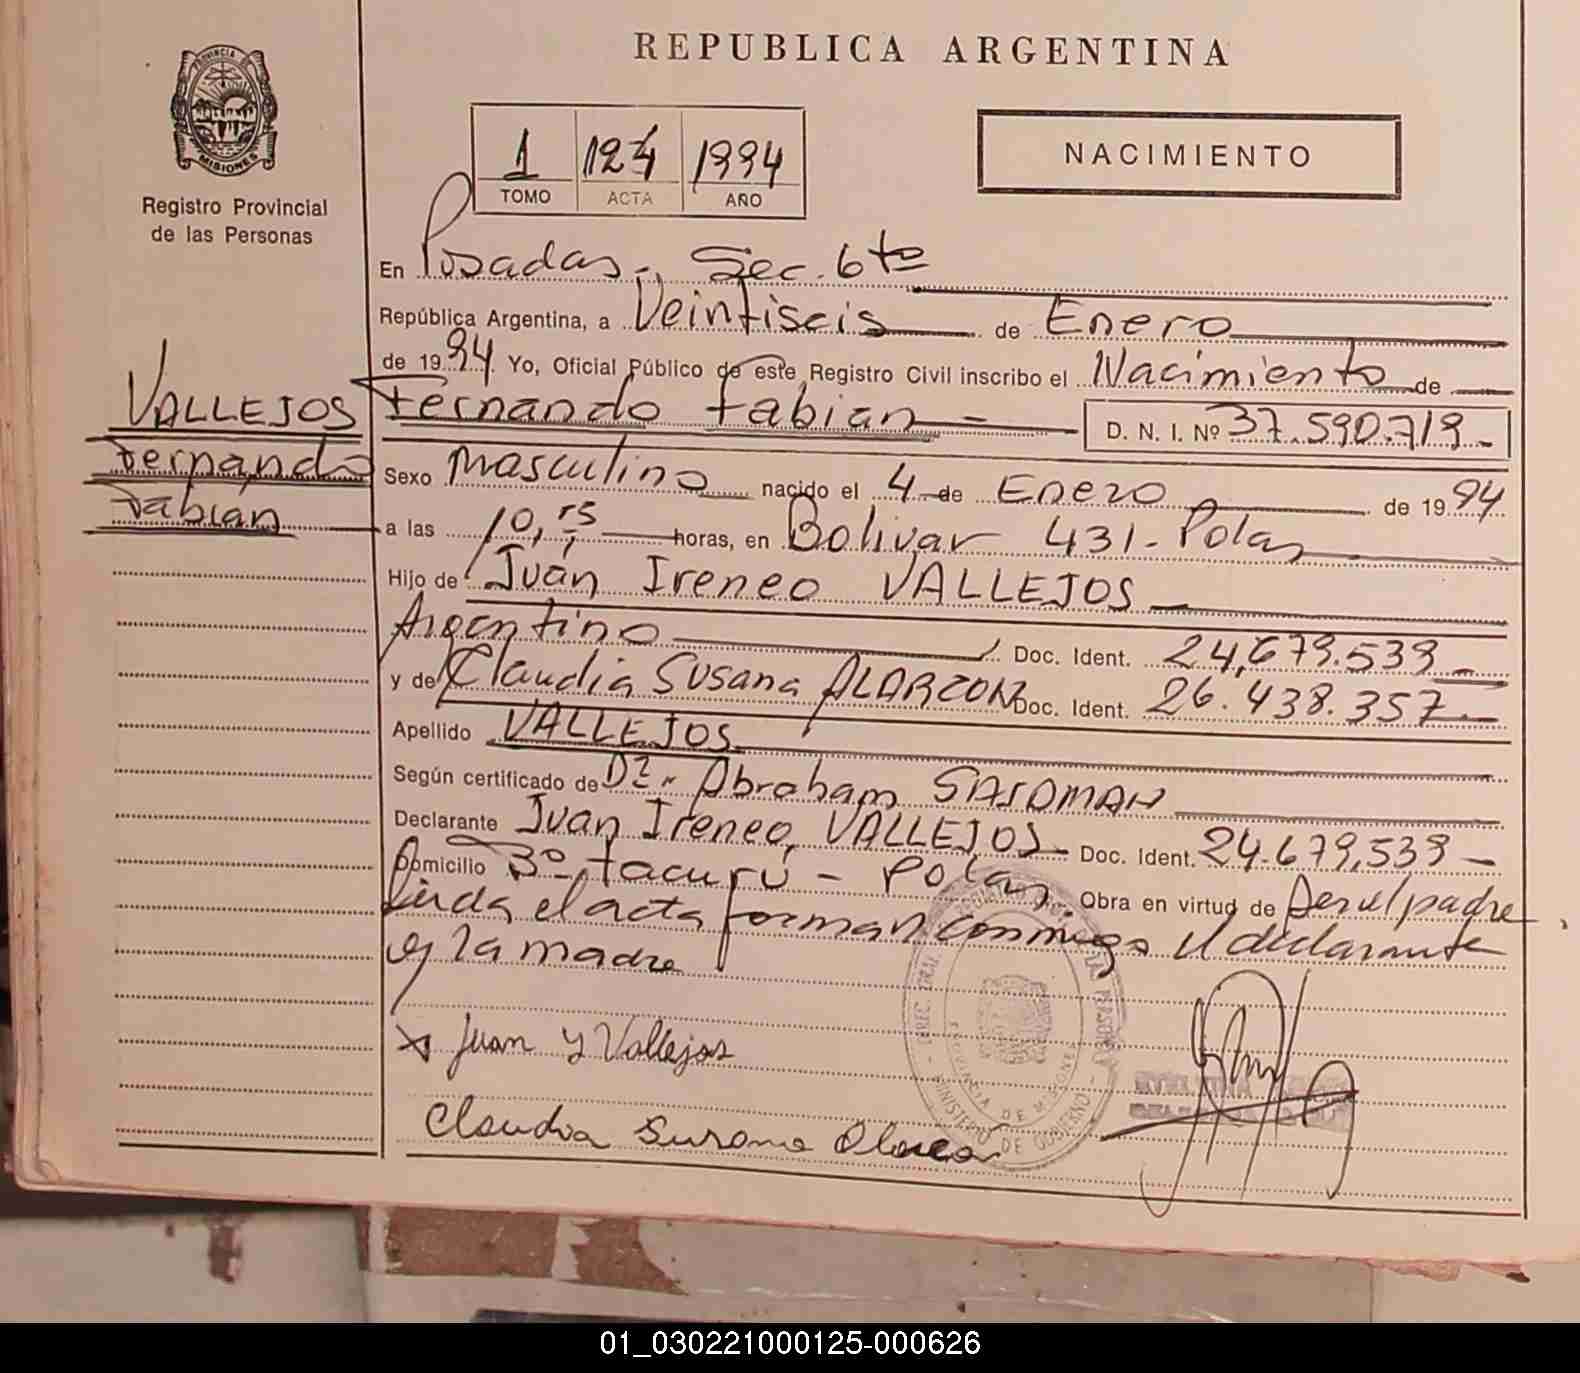 REPUBLICA ARGENTINA
PROVINCIA DE
MISIONES
Registro Provincial
de las Personas
1 124 1994
TOMO ACTA AÑO
NACIMIENTO
En Posadas-, Sec. 6ta
República Argentina, a Veintiseis de Enero
de 1994 Yo, Oficial Público de este Registro Civil inscribo el Nacimiento de
VALLEJOS
Fernando
Fabian
Fernando Fabian - D. N. I. Nº 37.590.719-
Sexo Masculino nacido el 4 de Enero de 1994
a las 10,15 horas, en Bolivar 431- Pdas
Hijo de Juan Ireneo VALLEJOS
Argentino Doc. Ident. 24,679.539
y de Claudia Susana ALARCON Doc. Ident. 26.438.357
Apellido VALLEJOS
Según certificado de Dr. Abraham
Declarante Juan Ireneo VALLEJOS- Doc. Ident. 24.679,539-
Domicilio Bº Tacurú - Pdas. Obra en virtud de Ser el padre.
Leida el acta forman conmigo el declarante
y la madre
Juan Y Vallejos
Claudia Susana Alarcon
PROVINCIA DE MISIONES
MINISTERIO DE GOBIERNO
01_030221000125-000626